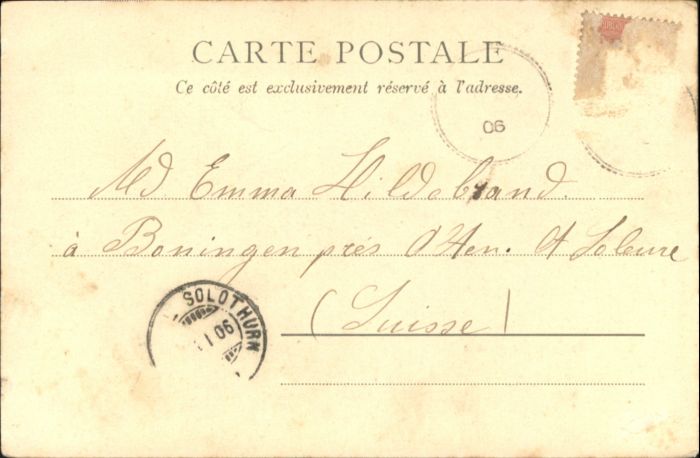 CARTE POSTALE
Ce côté est exclusivement réservé à l'adresse.
06
Md Emma Hildebrand.
à Boningen prés Olten. Ct Soleure
(Suisse)
SOLOTHURN
I 06